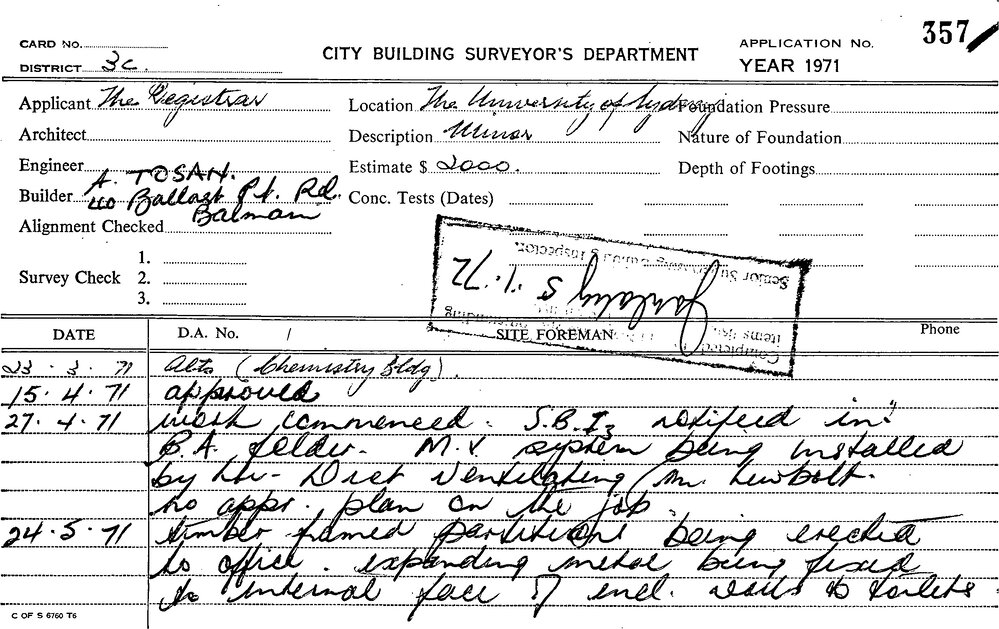 357/
CARD No.
CITY BUILDING SURVEYOR'S DEPARTMENT
APPLICATION No.
DISTRICT 3c.
YEAR 1971
Applicant The Registrar
Location The University of Sydney
Foundation Pressure
Architect
Description Minor
Nature of Foundation
Engineer
Estimate $ 2000.
Depth of Footings
Builder A. TOSAN.
40 Ballast Pt. Rd.
Balmain
Conc. Tests (Dates)
Alignment Checked
Survey Check 1.
2.
3.
Senior Supervising Building Inspector
5.1.72
Completed
items
DATE
D.A. No. /
SITE FOREMAN
Phone
23.3.71 Alts (Chemistry Bldg).
15.4.71 approved
27.4.71 work commenced. S.B.I. notified in
B.A. folder. M.V. system being installed
by Dist Ventilating (Mr. Newbolt.
no appr. plan on the job.
24.5.71 timber framed partitions being erected
to office. expanding metal being fixed
to internal face of encl. walls to toilets.
C OF S 6760 T6